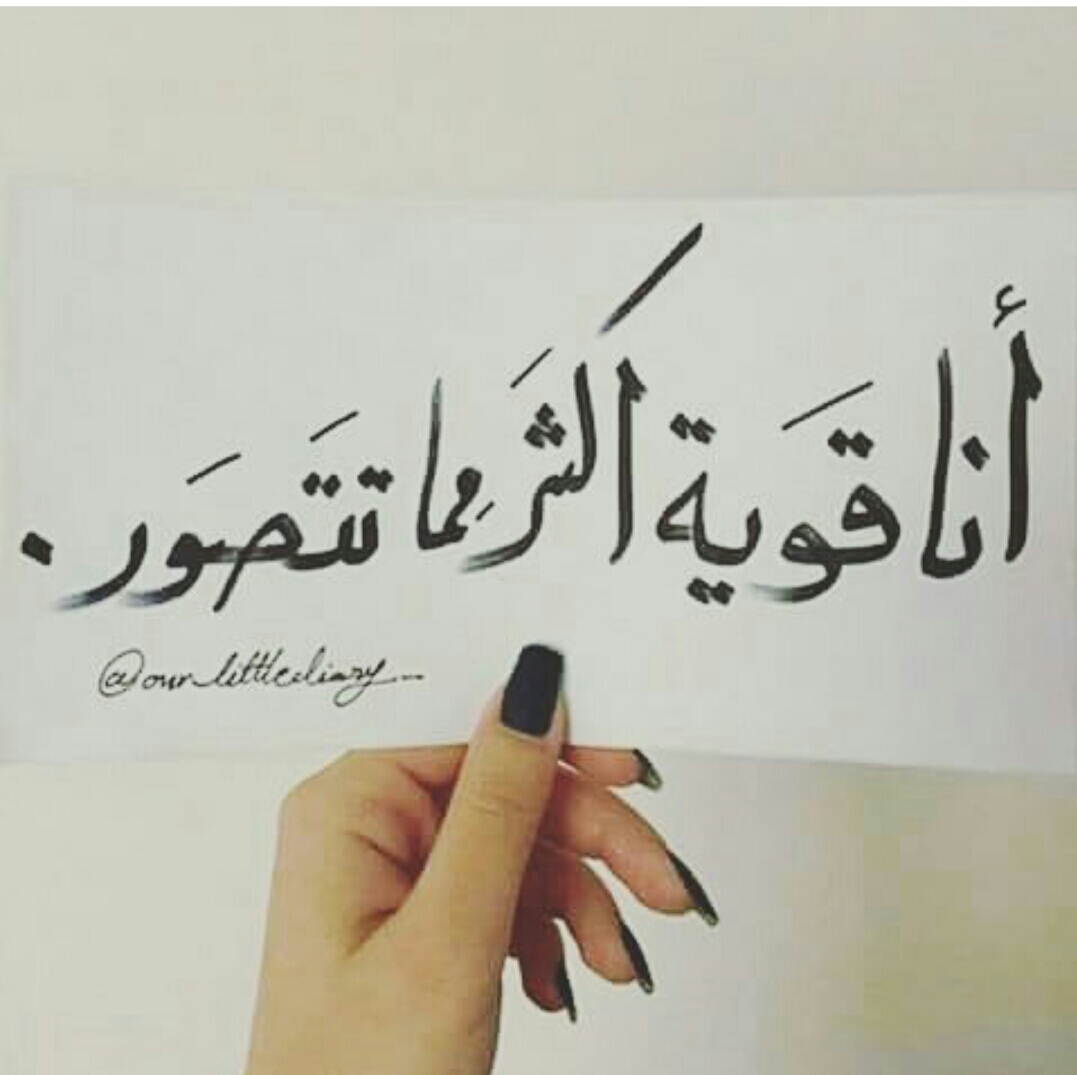 أنا قَوية اكثَر مِما تتَصَور .
@our_littlediary_